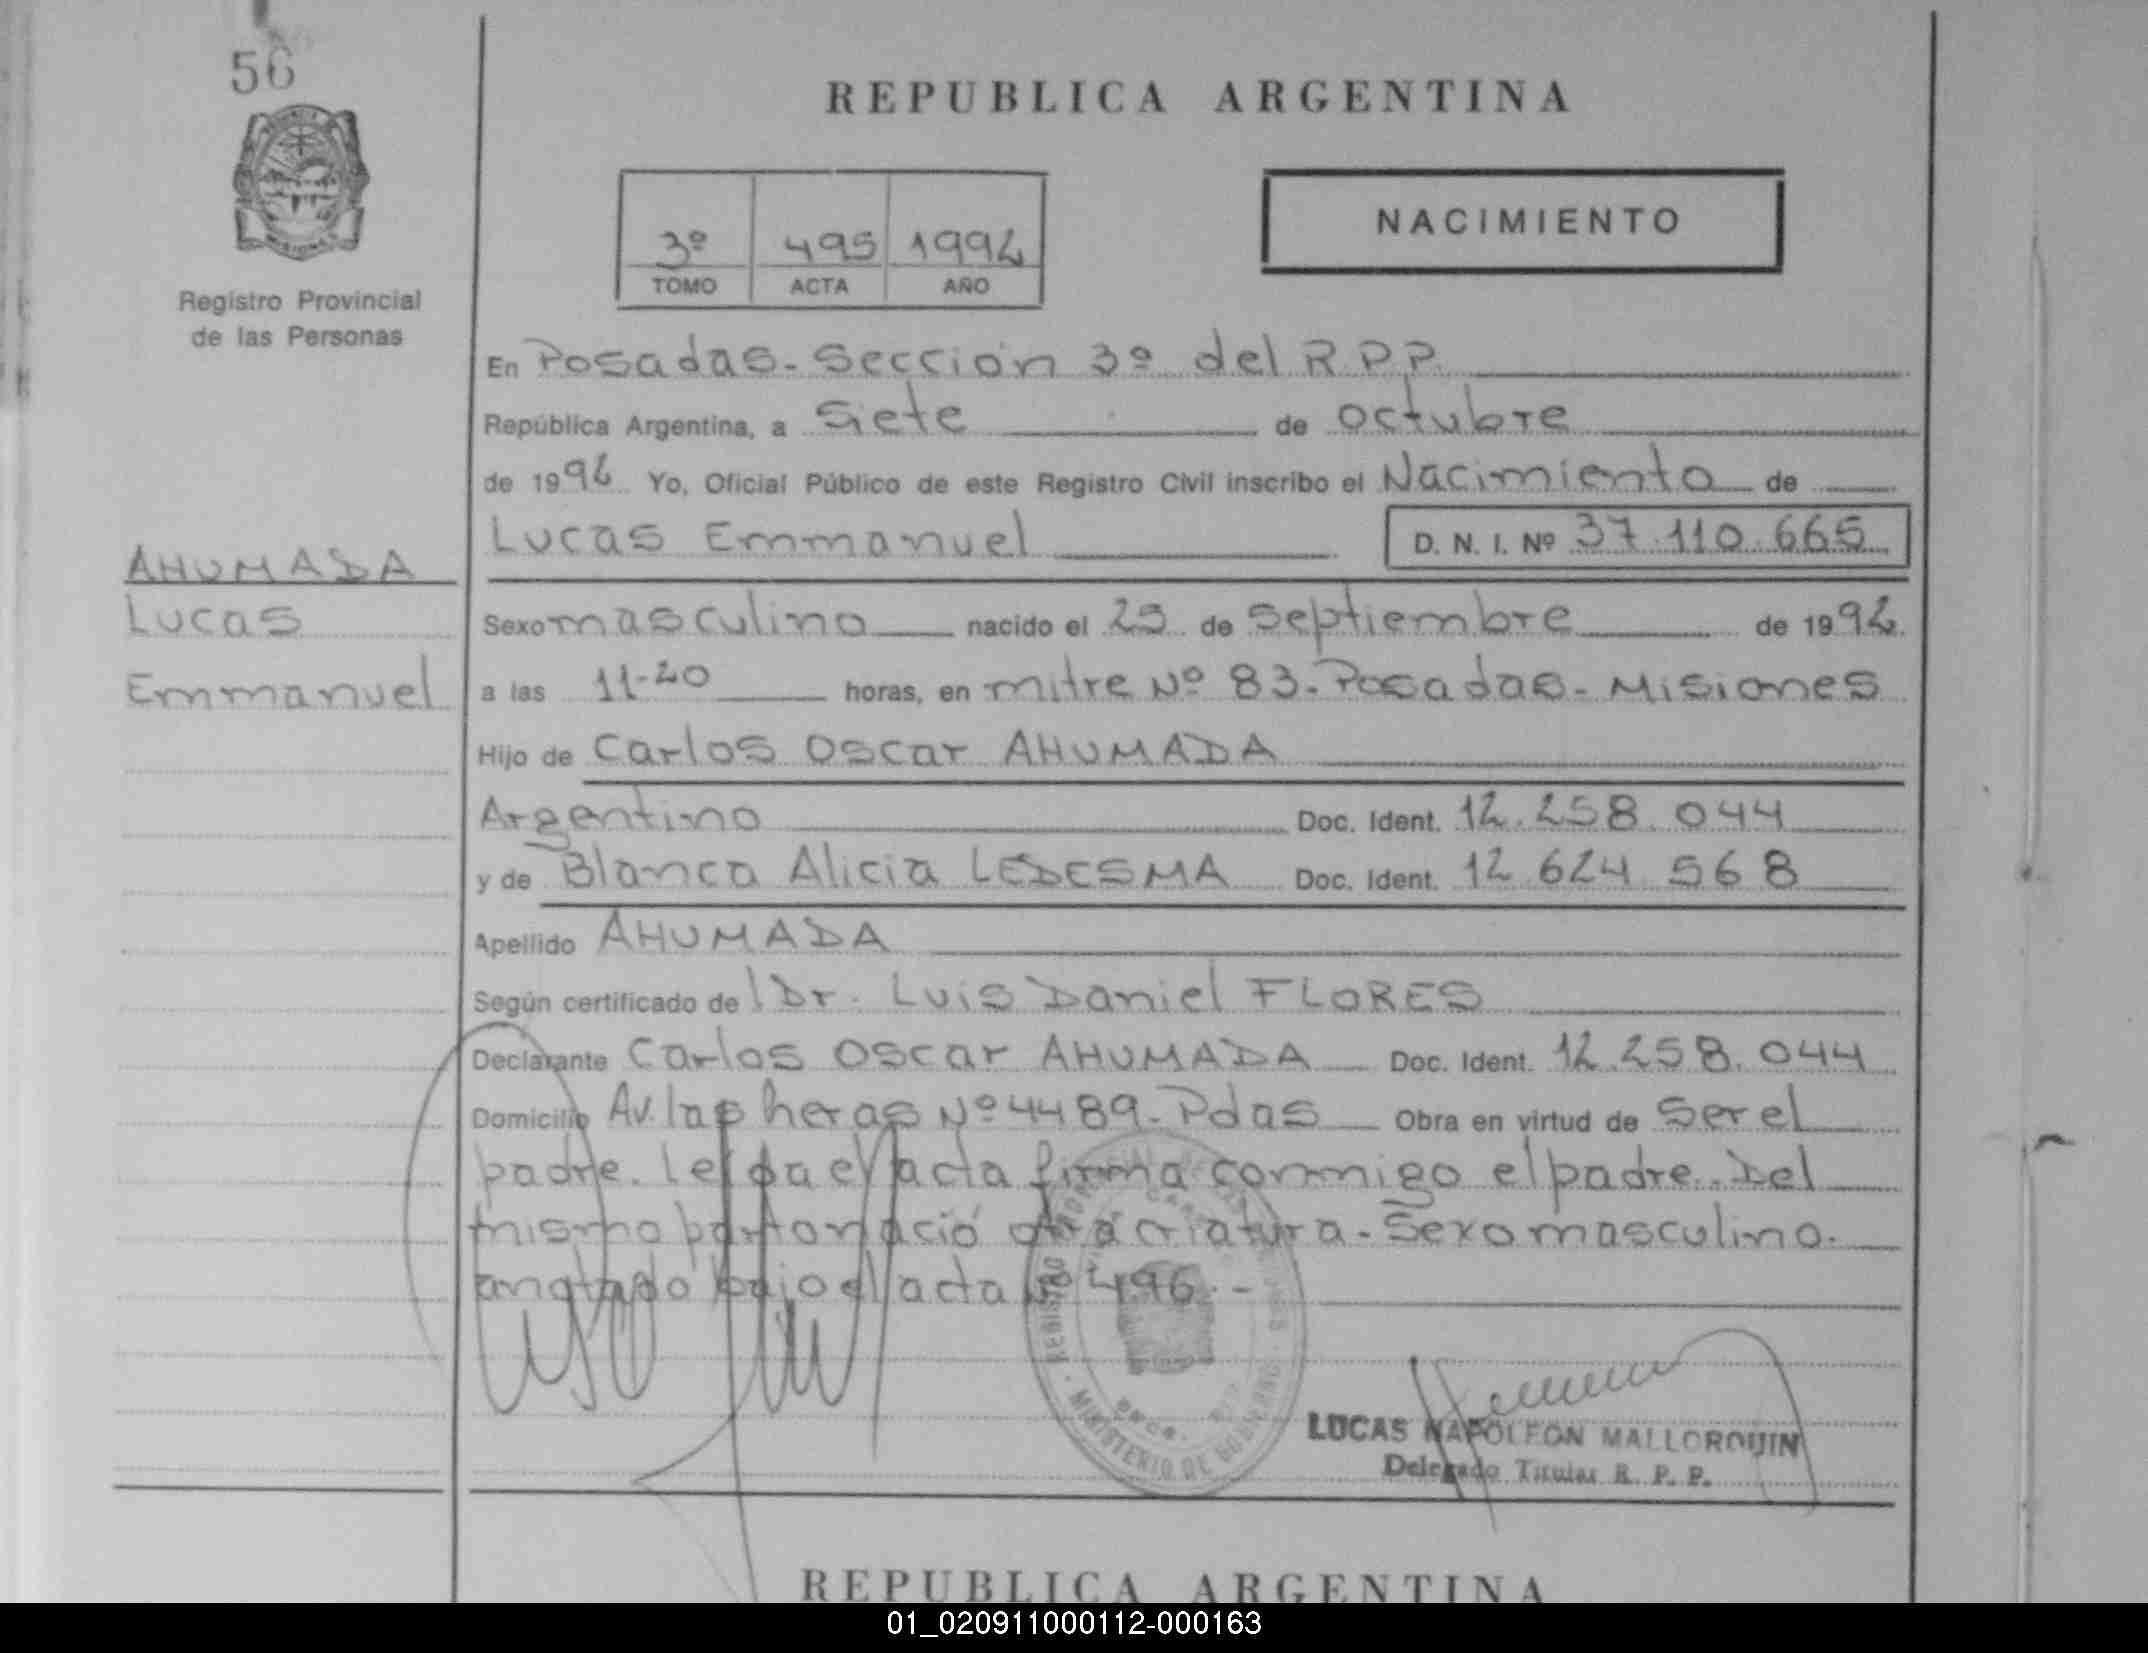 56
REPUBLICA ARGENTINA
NACIMIENTO
3º 495 1992
TOMO ACTA AÑO
Registro Provincial
de las Personas
En Posadas - Sección 3º del R.P.P.
República Argentina, a Siete de octubre
de 1992 Yo, Oficial Público de este Registro Civil inscribo el Nacimiento de
Lucas Emmanuel D. N. I. Nº 37.110.665
AHUMADA
Lucas
Emmanuel
Sexo masculino nacido el de Septiembre de 1992
a las 11-20 horas, en mitre Nº 83 - Posadas - Misiones
Hijo de Carlos Oscar AHUMADA
Argentino Doc. Ident. 12.258.044
y de Blanca Alicia LEDESMA Doc. Ident. 12 624 568
Apellido AHUMADA
Según certificado del Dr. Luis Daniel FLORES
Declarante Carlos Oscar AHUMADA Doc. Ident. 12.258.044
Domicilio Av. las heras Nº 4489 - Pdas Obra en virtud de Ser el
padre. Leida el acta firma conmigo el padre. Del
mismo parto nació otra criatura - Sexo masculino.
anotado bajo el acta Nº 496. -
MINISTERIO DE GOBIERNO
LUCAS NAPOLEON MALLORQUIN
Delegado Titular R. P. P.
REPUBLICA ARGENTINA
01_020911000112-000163